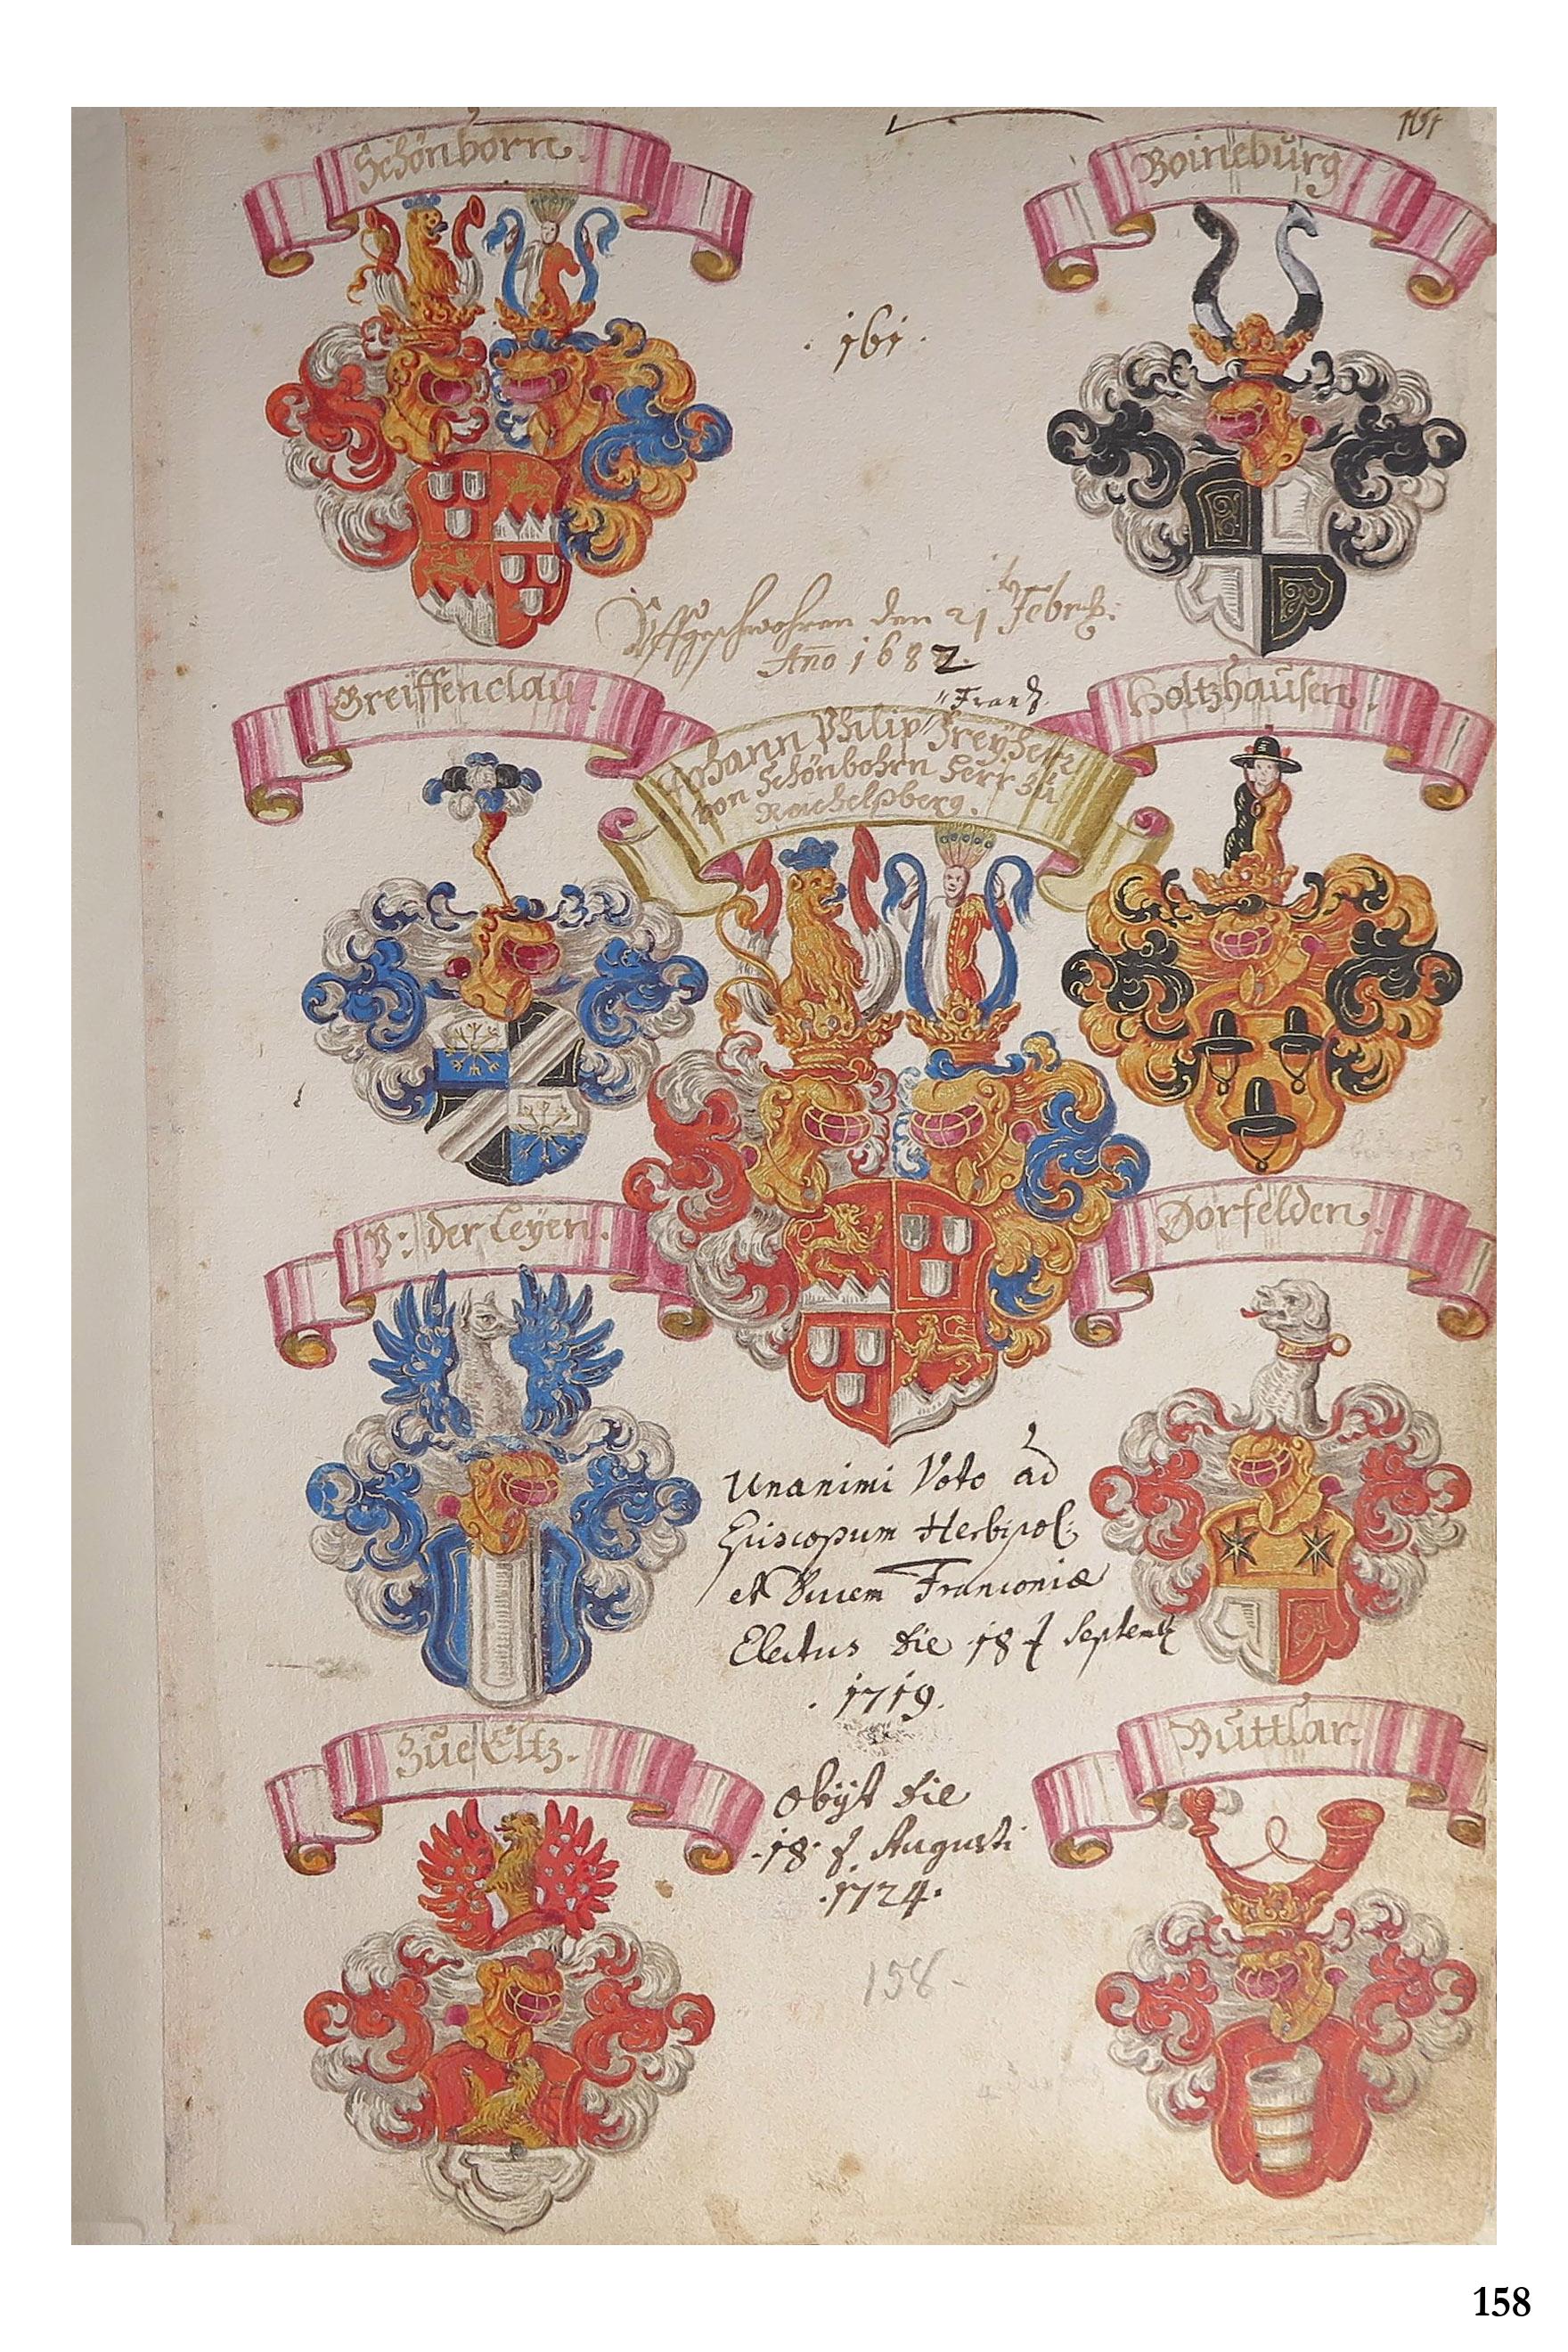 161
Schönborn.
Boineburg
· 161 ·
Uffgeschwohren den 21 t Febr:
Año 1682.
Greiffenclau.
"Frantz
Holtzhausen.
Johann Philip " Freyherr
von Schönbohrn Herr zu
Reichelsberg.
V: der Leyen.
Dorfelden.
Unanimi Voto ad
Episcopum Herbipol:
et Ducem Franconiæ
Electus die 18 t Septemb
· 1719.
Zue Eltz.
Buttlar.
obijt die
·18· t Augusti
·1724·
158-
158